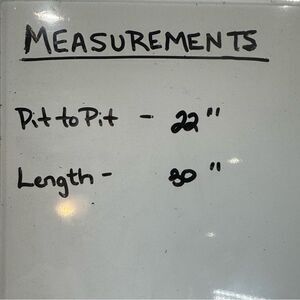 MEASUREMENTS
Pit to Pit - 22"
Length - 30"